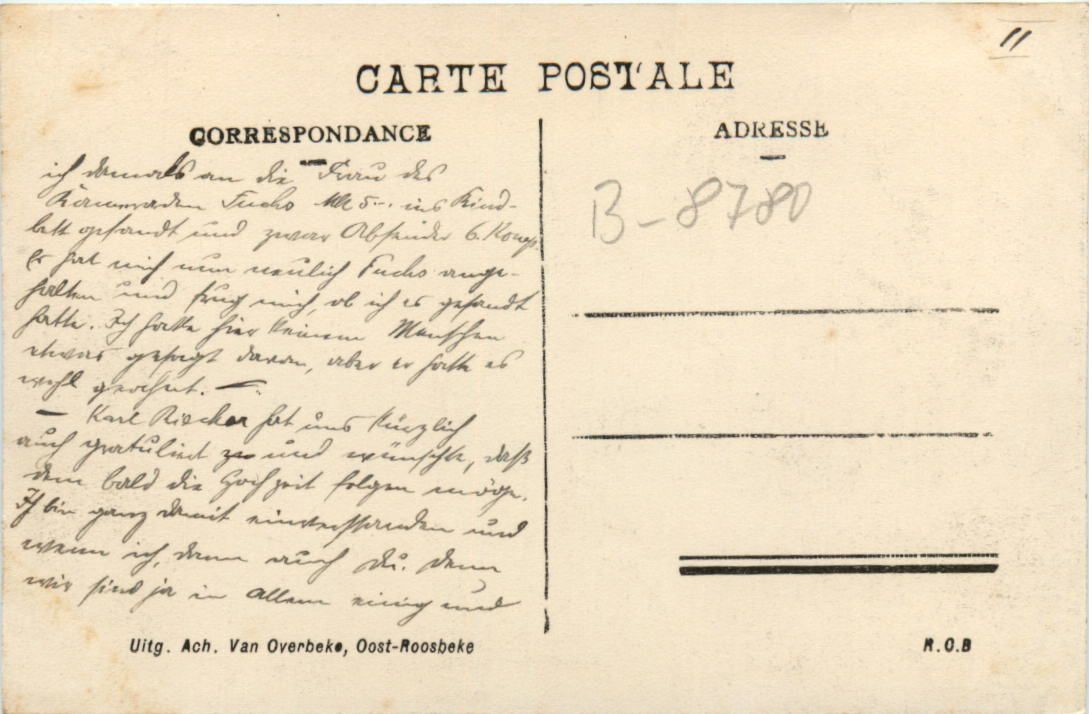 11
CARTE POSTALE
CORRESPONDANCE
ADRESSE
ich damals an die Frau des
Kameraden Fuchs Mk 5.-. ins Kind-
bett gesandt und zwar Absender 6. Komp.
Er hat mich nun neulich Fuchs ange-
halten und frug mich, ob ich es gesandt
hatte. Ich hatte hier keinem Menschen
etwas gesagt davon, aber er hatte es
wohl geahnt. —
— Karl Riecker hat uns kürzlich
auch gratuliert zu und wünschte, daß
dem bald die Hochzeit folgen möge.
Ich bin ganz damit einverstanden und
wenn ich, dann auch Du. Denn
wir sind ja in Allem einig und
B-8780
Uitg. Ach. Van Overbeke, Oost-Roosbeke
R.O.B